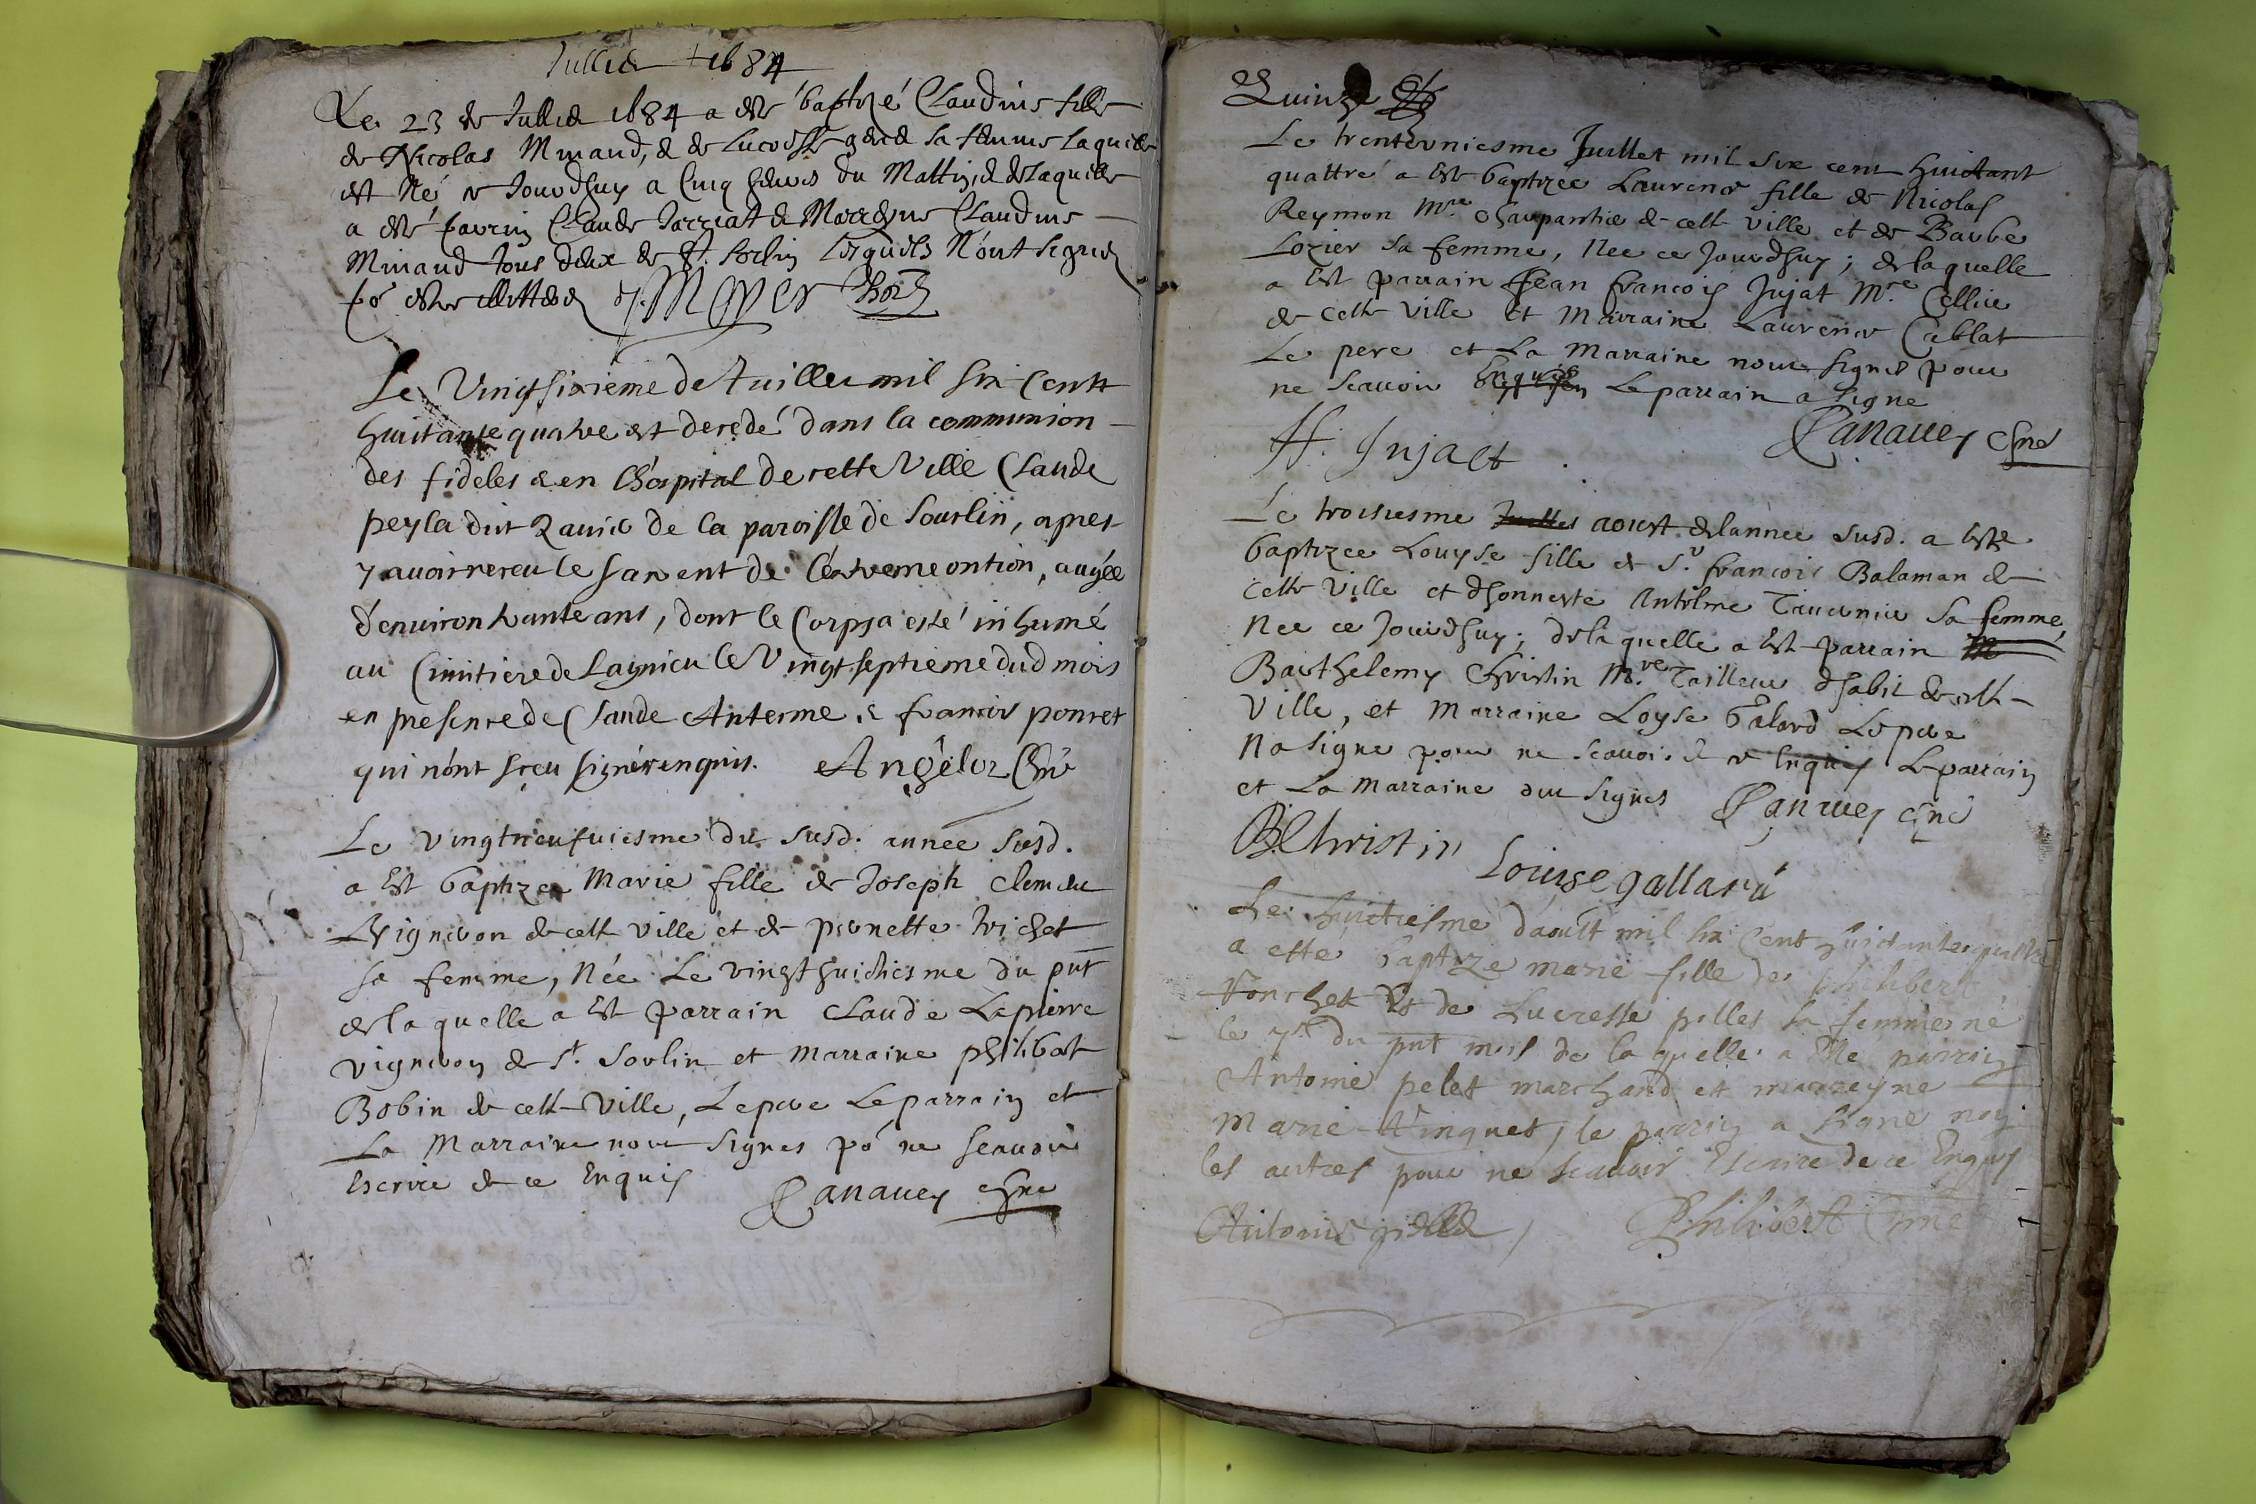 Juillet 1684
Le 23 de Juillet 1684 a esté baptizé Claudine fille
de Nicolas Minaud, & de Lucresse sa femme laquelle
est Né ce Jourdhuy a Cinq heures du Mattin, & de laquelle
a esté parrin Claude & Marreyne Claudine
Minaud tous deux de St. Sorlin lesquels N'ont signer
po estre illitteres Moyer
Le Vingtsixieme de Juillet mil six Cents
huitante quatre est decedé dans la communion
des fideles & en l'hospital de cette Ville Claude
peyla dit de la paroisse de Sourlin, apres
y avoir receu le sacrent de l'extreme ontion, augée
d'environ trante ans, dont le Corps a esté inhumé
au Cimitiere de Lagnieu le Vingt septieme dud mois
en presence de Claude Anterme & francois poncet
qui n'ont sceu signer enquis. Angelot
Le vingtneufuiesme du susd. année susd.
a Est baptizee Marie fille de Joseph
Vigneron de cett ville et de pernette trichet
sa femme, Née Le vingthuictiesme du put
de la quelle a Est parrain Claude Lapierre
vigneron de St. Sorlin et Marraine philibert
Bobin de cett Ville, Le pere Le parrain et
La Marraine nont signes po ne scauoir
Escrire de ce Enquis Canauey
Quinze
Le trentevniesme Juillet mil six cent huictant
quattre a este baptizee Laurence fille de Nicolas
Reymon Mre Charpantie de cett ville et de Barbe
Lozier sa femme, Nee ce Jourdhuy; de laquelle
a Est parrain Jean francois Jujat Mre Cellier
de cette ville et Marraine Laurence Cablat
Le pere et La Marraine nont signes pour
ne scauoir Enquis Le parrain a signe
Jujact Canauey
Le troisiesme Juillet aoust de lannee susd. a este
baptizee Louyse fille de Sr francois Balaman de
cette ville et dhonneste Antelme Tauernier sa femme,
Nee ce Jourdhuy; de la quelle a Est parrain
Barthelemy Christin Mre Tailleur dhabit de cett
Ville, et Marraine Loyse Galard Le pere
Na signe pour ne scauoir de ce Enquis Le parrain
et La Marraine ont signes Canauey
B Christin
Louise gallard
Le huictiesme d'aoust mil six Cent huictante quattre
a este baptize marie fille de philibert
et de Lucresse pelles sa femme né
le 7e du put mois de la quelle a este parrin
Antoine pelet marchand et marreyne
Marie, le parrin a signé non
les autres pour ne scauoir Escrire de ce Enquis
Antoine Philibert